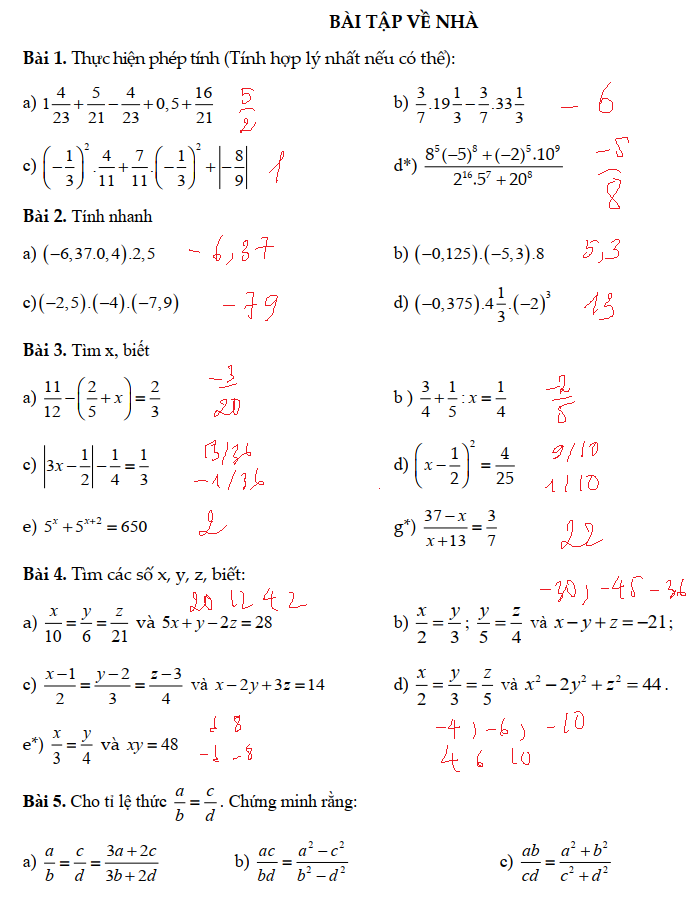 BÀI TẬP VỀ NHÀ
Bài 1. Thực hiện phép tính (Tính hợp lý nhất nếu có thể):
a) 1 4/23 + 5/21 − 4/23 + 0,5 + 16/21 5/2 b) 3/7 . 19 1/3 − 3/7 . 33 1/3 − 6
c) (−1/3)² . 4/11 + 7/11 . (−1/3)² + |−8/9| 1 d*) (8⁵(−5)⁸ + (−2)⁵.10⁹)/(2¹⁶.5⁷ + 20⁸) −5/8
Bài 2. Tính nhanh
a) (−6,37.0,4).2,5 −6,37 b) (−0,125).(−5,3).8 5,3
c)(−2,5).(−4).(−7,9) −79 d) (−0,375).4 1/3.(−2)³ 13
Bài 3. Tìm x, biết
a) 11/12 − (2/5 + x) = 2/3 −3/20 b ) 3/4 + 1/5 : x = 1/4 −2/5
c) |3x − 1/2| − 1/4 = 1/3 13/36 d) (x − 1/2)² = 4/25 9/10
−1/36 1/10
e) 5ˣ + 5ˣ⁺² = 650 2 g*) (37 − x)/(x + 13) = 3/7 22
Bài 4. Tìm các số x, y, z, biết:
20 12 42 −30, −45 −36
a) x/10 = y/6 = z/21 và 5x + y − 2z = 28 b) x/2 = y/3 ; y/5 = z/4 và x − y + z = −21;
c) (x−1)/2 = (y−2)/3 = (z−3)/4 và x − 2y + 3z = 14 d) x/2 = y/3 = z/5 và x² − 2y² + z² = 44 .
e*) x/3 = y/4 và xy = 48 8 −4, −6, −10
−8 4 6 10
Bài 5. Cho tỉ lệ thức a/b = c/d . Chứng minh rằng:
a) a/b = c/d = (3a + 2c)/(3b + 2d) b) ac/bd = (a² − c²)/(b² − d²) c) ab/cd = (a² + b²)/(c² + d²)